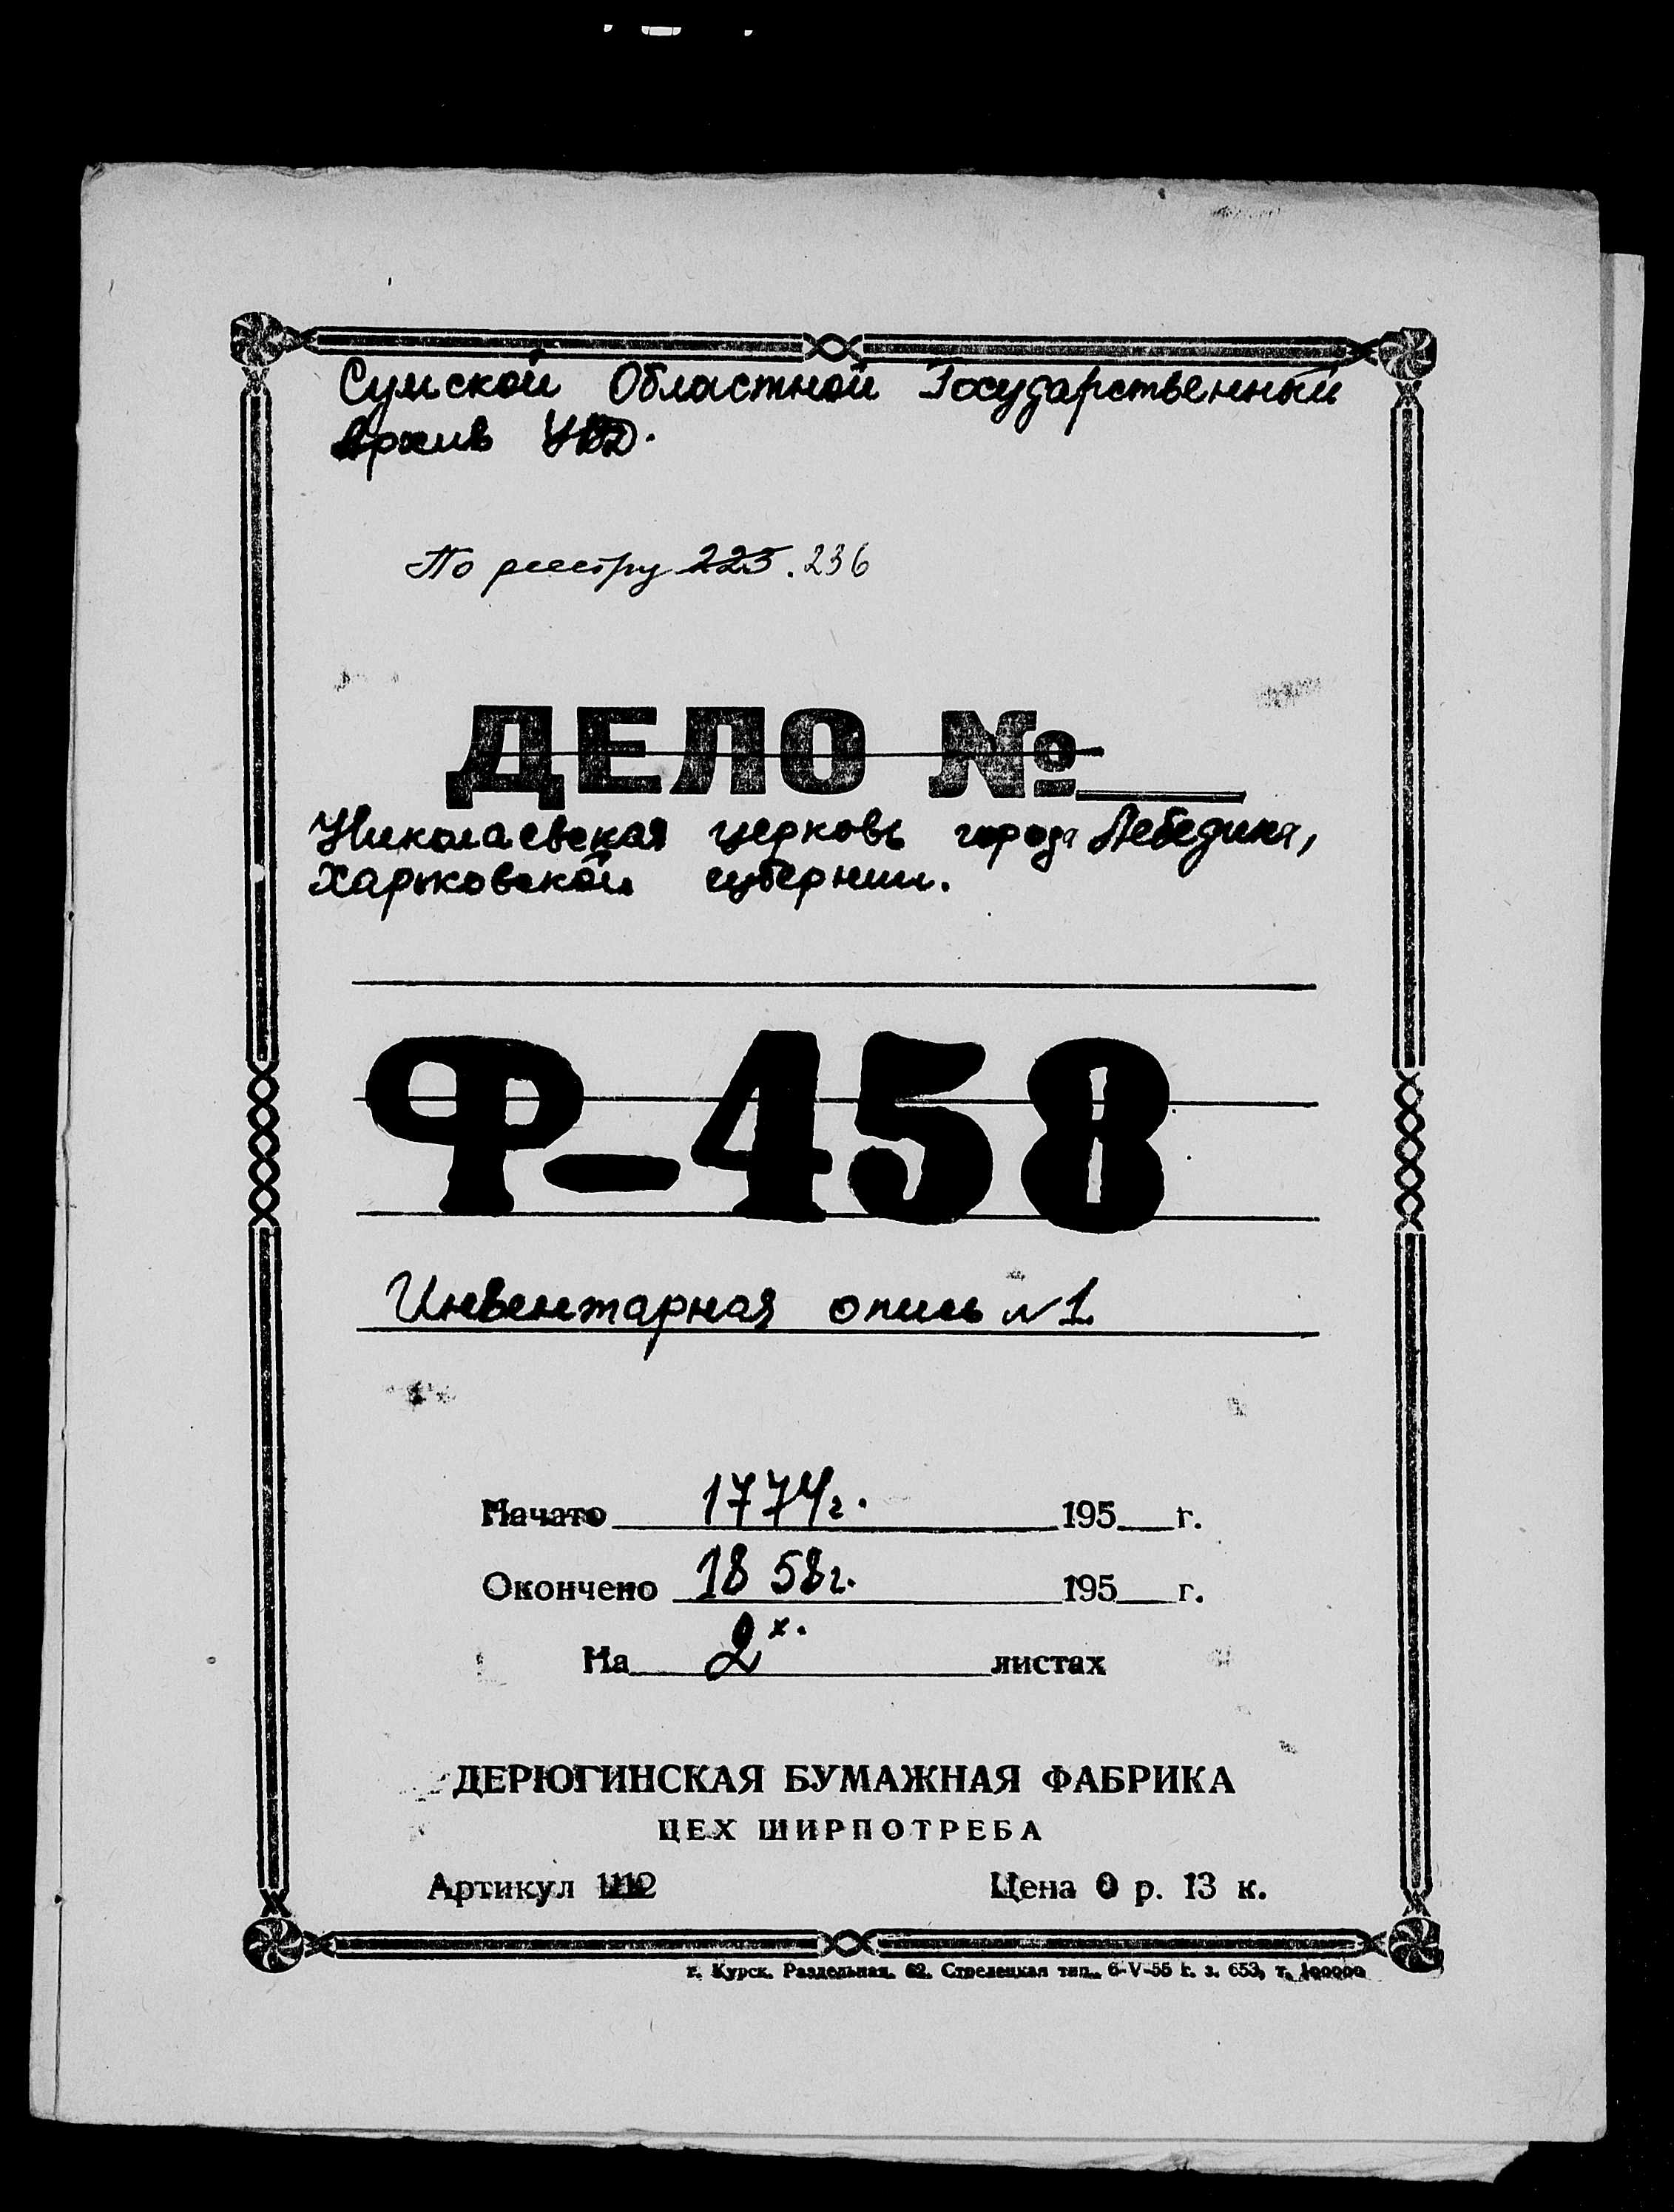 Сумской Областной Государственный
Архив УВД.
По реестру 225. 236
ДЕЛО №
Николаевская церковь города Лебедина,
Харьковской губернии.
Ф-458
Инвентарная опись №1.
Начато 1774г. 195 г.
Окончено 1858г. 195 г.
На 2х. листах
ДЕРЮГИНСКАЯ БУМАЖНАЯ ФАБРИКА
ЦЕХ ШИРПОТРЕБА
Артикул 1112 Цена 0 р. 13 к.
г. Курск. Раздельная. 62. Стрелецкая тип. 6-V-55 г. з. 653, т. 100000